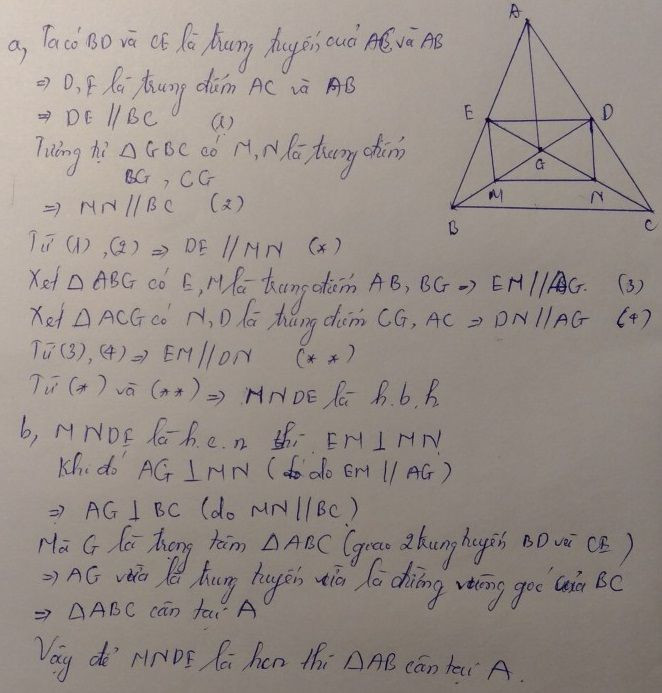 a, Ta có BD và CE là trung tuyến của AC và AB
⇒ D, E là trung điểm AC và AB
⇒ DE // BC (1)
Tương tự △GBC có M, N là trung điểm
BG, CG
⇒ MN // BC (2)
Từ (1), (2) ⇒ DE // MN (*)
Xét △ABG có E, M là trung điểm AB, BG ⇒ EM // AG. (3)
Xét △ACG có N, D là trung điểm CG, AC ⇒ DN // AG (4)
Từ (3), (4) ⇒ EM // DN (**)
Từ (*) và (**) ⇒ MNDE là h.b.h
b, MNDE là h.c.n thì EM ⊥ MN
Khi đó AG ⊥ MN (do EM // AG)
⇒ AG ⊥ BC (do MN // BC)
Mà G là trọng tâm △ABC (giao 2 trung tuyến BD và CE)
⇒ AG vừa là trung tuyến vừa là đường vuông góc của BC
⇒ △ABC cân tại A
Vậy để MNDE là hcn thì △AB cân tại A.
A
E
D
G
M
N
B
C